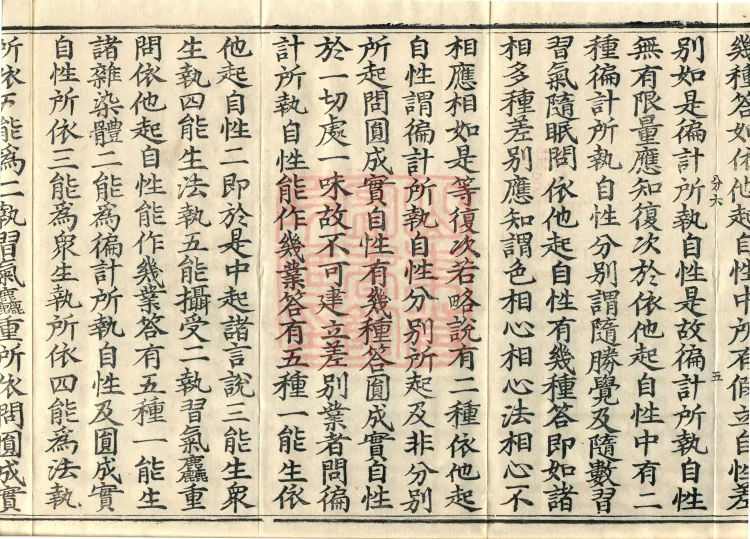 幾種答如依他起自性中所有假立自性差
別如是徧計所執自性是故徧計所執自性
無有限量應知復次於依他起自性中有二
種徧計所執自性分別謂隨勝覺及隨數習
習氣隨眠問依他起自性有幾種答即如諸
相多種差別應知謂色相心相心法相心不
相應相如是等復次若略說有二種依他起
自性謂徧計所執自性分別所起及非分別
所起問圓成實自性有幾種答圓成實自性
於一切處一味故不可建立差別業者問徧
計所執自性能作幾業答有五種一能生依
他起自性二即於是中起諸言說三能生衆
生執四能生法執五能攝受二執習氣麤重
問依他起自性能作幾業答有五種一能生
諸雜染體二能為徧計所執自性及圓成實
自性所依三能為衆生執所依四能為法執
所依五能為二執習氣麤重所依問圓成實
分六
五